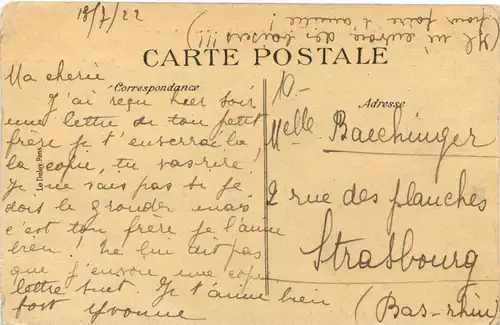 18/7/22
(Il m'envoie des baisers !!!
pour faire l'amitié !)
CARTE POSTALE
Correspondance
Adresse
Ma cherie
J'ai reçu hier soir
une lettre de ton petit
frère je t'enverrai
la copie, tu vas rire !
Je ne sais pas si je
dois le gronder mais
c'est ton frère je l'aime
bien ! Ne lui dit pas
que j'envoie une copie
lettre Je t'aime bien
fort Yvonne
Le Deley Paris
Melle Baechinger
2 rue des planches
Strasbourg
(Bas-rhin)